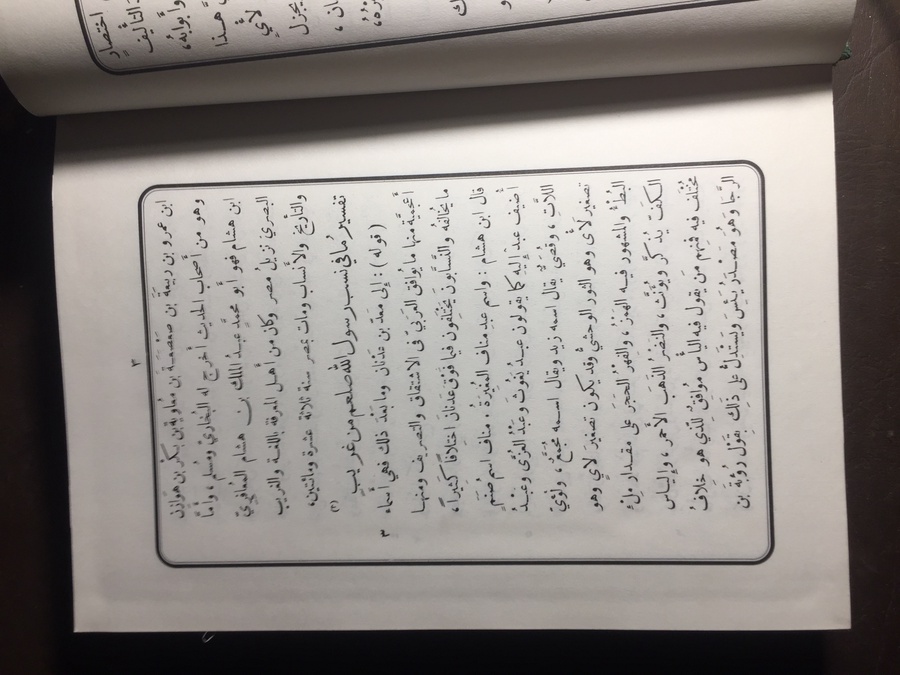 ٣
ابن عمرو بن ربيعة بن صَعْصَعَة بن معاوية بن بكر بن هوازن
وهو من أصحاب الحديث أخرج له البُخاريّ ومسلم، وأمّا
ابن هشام فهو أبو محمّد عبدُ الملك بن هشام المَعافريّ
البصريّ نزيلُ مصر وكان من أهل المعرفة باللغة والغريب
والتأريخ والأنساب ومات بمصر سنة ثلاثة عشرة ومائتين،
(٢) تفسير ما في نسب رسول الله صلعم من غريب
٣ (قوله): إلى مَعَدّ بن عَدْنَان وما بَعْدَ ذلك فهي أسماء
أعجميّة منها ما يُوافق العَرَبيّ في الاشتقاق والتصريف ومنها
ما يُخالفُه والنَّسّابُون يَخْتلِفون فيما فَوْقَ عَدْنَان اختِلافًا كثيرًا،
قال ابن هشام: واسم عبد مناف المُغيرَة، مناف اسم صَنَم
أُضيف عبد إليه كما يقولون عبد يَغُوث وعَبْدُ العُزَّى وعَبْدُ
اللاّت، وقُصَيّ يقال اسمه زيد ويقال اسمه مُجَمِّع، ولُؤَيّ
تصغير لأًى وهو الثور الوحشيّ وقد يكون تصغيرَ لأي وهو
البُطْءُ والمشهور فيه الهَمْزُ، والفِهْرُ الحَجَر على مقدار مِلْءِ
الكفّ يُذكَّر ويُؤنَّث، والنَّضْرُ الذَّهب الأحمر، وإلياس
مُخْتَلَف فيه فمنهم مَن يقول فيه اليأْس مُوافقٌ للّذي هو خلافُ
الرَّجا وَهُوَ مَصْدَرُ يَئِسَ ويَسْتدِلّ على ذلك بقول رُؤْبَة بن